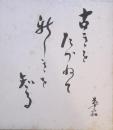 古きを
たづねて
新しきを
知る